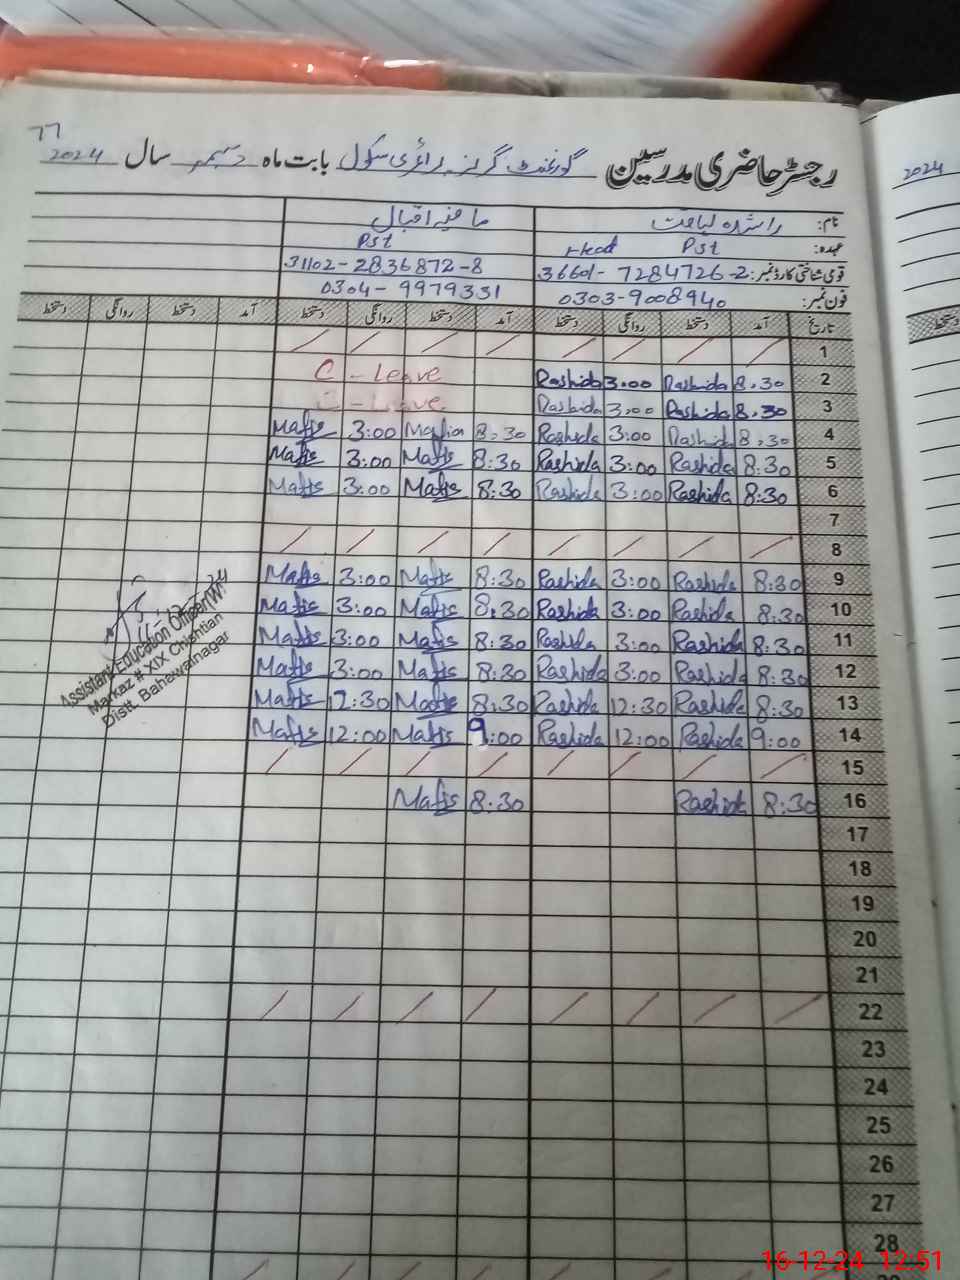 77
رجسٹر حاضری مدرسین گورنمنٹ گرلز پرائمری سکول بابت ماہ دسمبر سال 2024
2024
نام: راشدہ لیاقت اقبال
عہدہ: Head Pst Pst
قومی شناختی کارڈ نمبر: 36601-7284726-2 31102-2836872-8
فون نمبر: 0303-9008940 0304-9979331
تاریخ آمد دستخط روانگی دستخط آمد دستخط روانگی دستخط آمد دستخط روانگی دستخط
دستخط
1
C - Leave Rashida 3.00 Rashida 8.30 2
C - Leave Rashida 3.00 Rashida 8.30 3
Mafis 3:00 Mafia 8.30 Rashida 3:00 Rashida 8.30 4
Mafis 3:00 Mafis 8:30 Rashida 3:00 Rashida 8:30 5
Mafis 3:00 Mafis 8:30 Rashida 3:00 Rashida 8:30 6
7
8
Mafis 3:00 Mafis 8:30 Rashida 3:00 Rashida 8:30 9
Mafis 3:00 Mafis 8.30 Rashida 3:00 Rashida 8:30 10
Mafis 3:00 Mafis 8:30 Rashida 3:00 Rashida 8:30 11
Mafis 3:00 Mafis 8:30 Rashida 3:00 Rashida 8:30 12
Mafis 12:30 Mafis 8:30 Rashida 12:30 Rashida 8:30 13
Mafis 12:00 Mafis 9:00 Rashida 12:00 Rashida 9:00 14
15
Mafis 8:30 Rashida 8:30 16
17
18
19
20
21
22
23
24
25
26
27
28
Assistant Education Officer(W)
Markaz # XIX Chishtian
Distt. Bahawalnagar
16-12-24 12:51